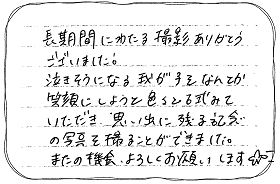 長期間にわたる撮影ありがとう
ございました。
泣きそうになる我が子をなんとか
笑顔にしようと色々と試みて
いただき、思い出に残る記念
の写真を撮ることができました。
またの機会、よろしくお願いします